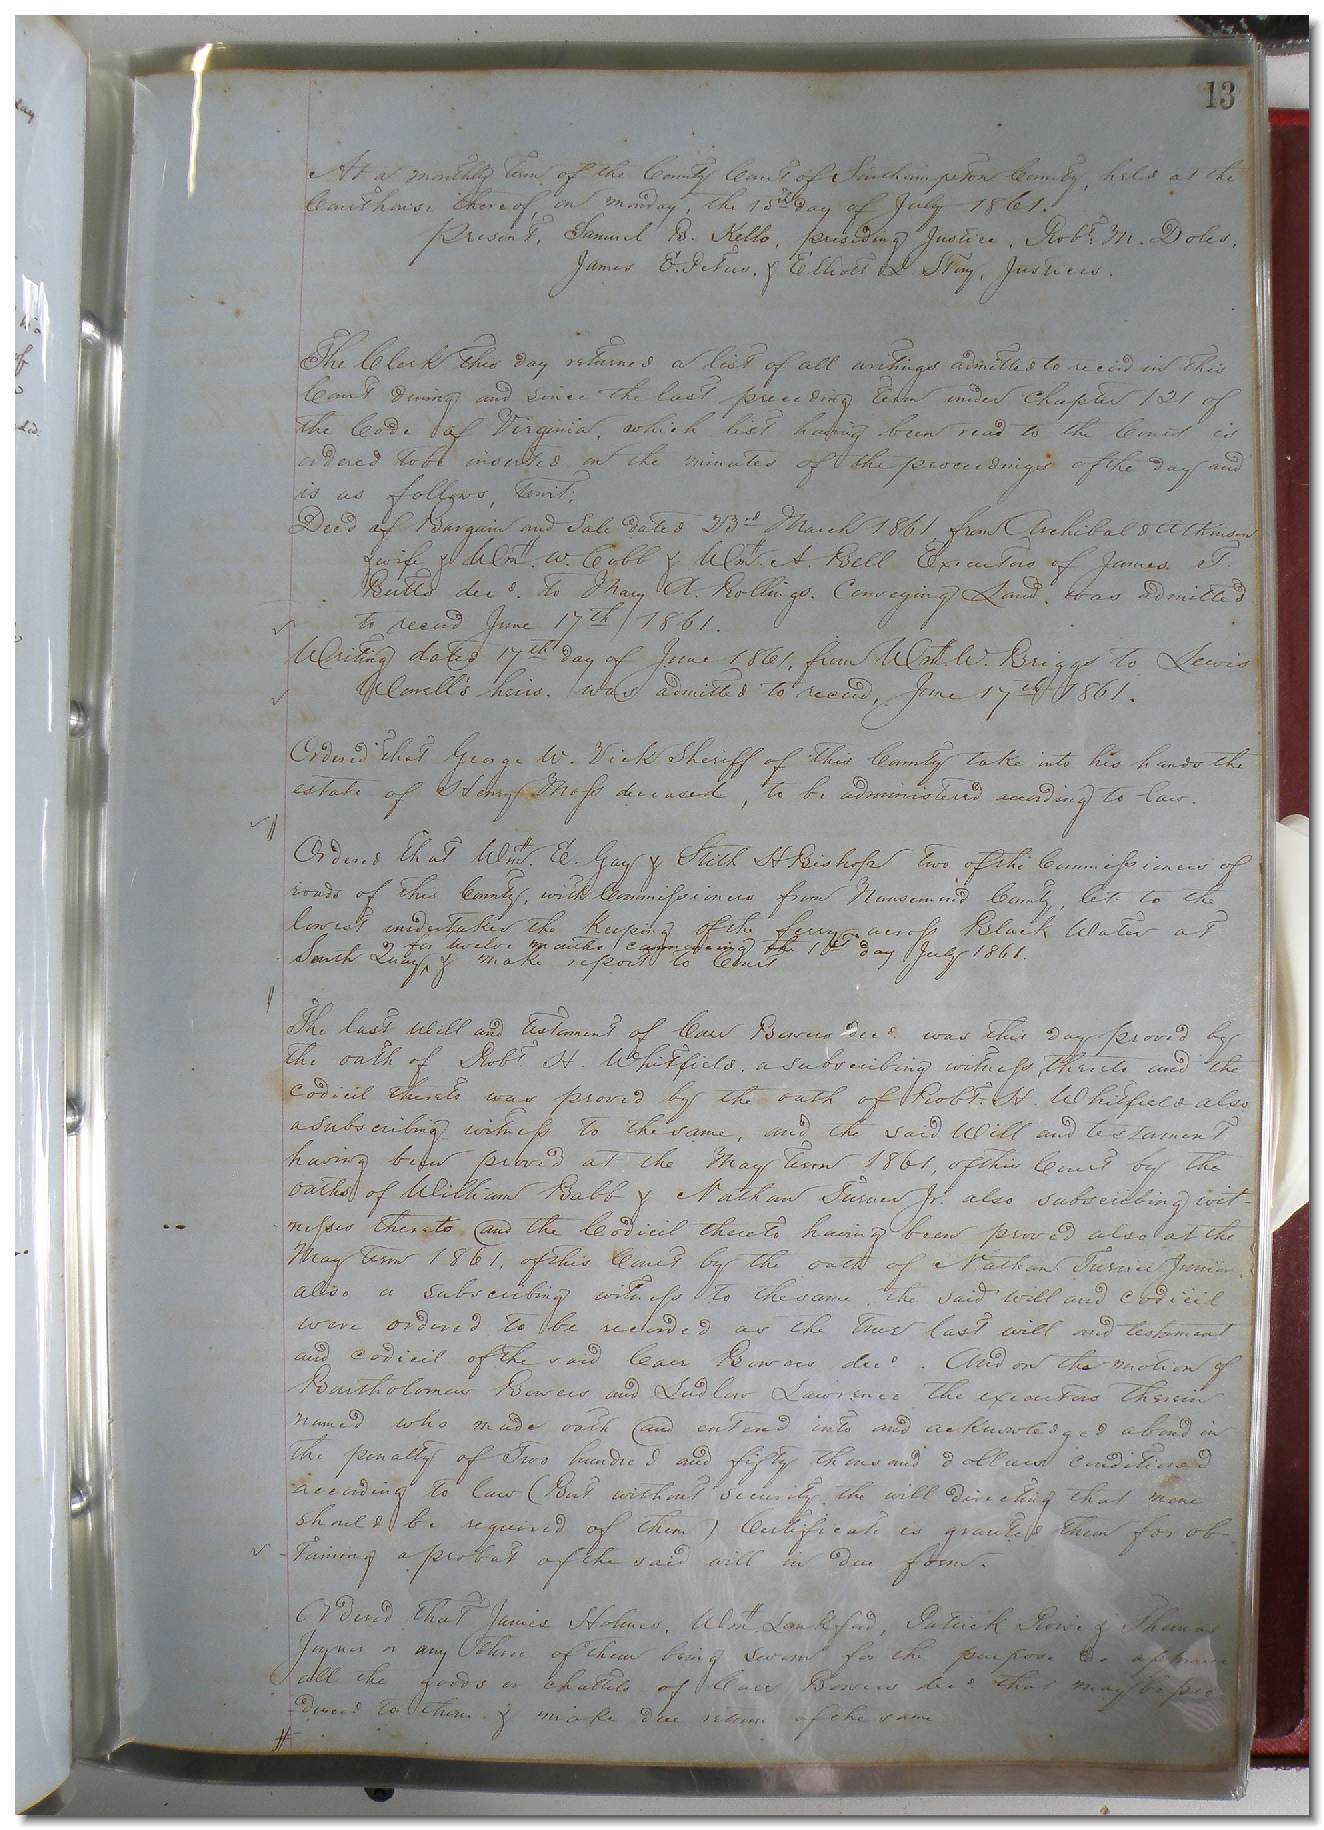 13
At a monthly term of the County Court of Southampton County, held at the
Courthouse thereof, on monday, the 15th day of July 1861.
Present, Samuel B. Kello, presiding Justice, Robt. M. Doles,
James E. & Elliott L Story, Justices.
The Clerk this day returned a list of all writings admitted to record in this
Court during and since the last preceding term under Chapter 121 of
the Code of Virginia, which list having been read to the Court is
ordered to be inserted in the minutes of the proceedings of the day and
is as follows, towit;
Deed of Bargain and Sale dated 23rd March 1861, from Archibald Atkinson
& wife & Wm. W. Cobb & Wm. A. Bell Executors of James T.
Butts decd. to Mary A. Rollings. Conveying Land, was admitted
to record June 17th 1861.
Writing dated 17th day of June 1861, from Wm. W. Briggs to Lewis
Worrell's heirs. was admitted to record, June 17th 1861.
Ordered that George W. Vick Sheriff of this County take into his hands the
estate of Henry Moss deceased, to be administered according to law.
Ordered that Wm. E. Gay & Stith H Bishop two of the Commissioners of
roads of this County, with Commissioners from Nansemond County, let to the
lowest undertaker the keeping of the ferry across Black Water at
for twelve months commencing the 1st day July 1861.
South Quay, & make report to Court
The last Will and testament of Carr Bowers decd. was this day proved by
the oath of Robt H. Whitfield. a subscribing witness thereto and the
Codicil thereto was proved by the oath of Robt. H. Whitfield also
a subscribing witness to the same, and the said Will and testament
having been proved at the May term 1861, of this Court by the
oaths of William Babb & Nathan Turner Jr. also subscribing wit-
nesses thereto and the Codicil thereto having been proved also at the
May term 1861, of this Court by the oath of Nathan Turner Junior,
also a subscribing witness to the same, the said will and codicil
were ordered to be recorded as the true last will and testament
and codicil of the said Carr Bowers decd. And on the motion of
Bartholomew Bowers and Ludlow Lawrence the executors therein
named who made oath and entered into and acknowledged a bond in
the penalty of Two hundred and fifty thousand dollars conditioned
according to law (But without security the will directing that none
should be required of them) Certificate is granted them for ob-
taining a probat of the said will in due form.
Ordered that James Holmes, Wm. Lankford, Patrick Rowe & Thomas
Joyner or any three of them being sworn for the purpose do appraise
all the goods or chattels of Carr Bowers decd. that may be pro
-duced to them & make due return of the same